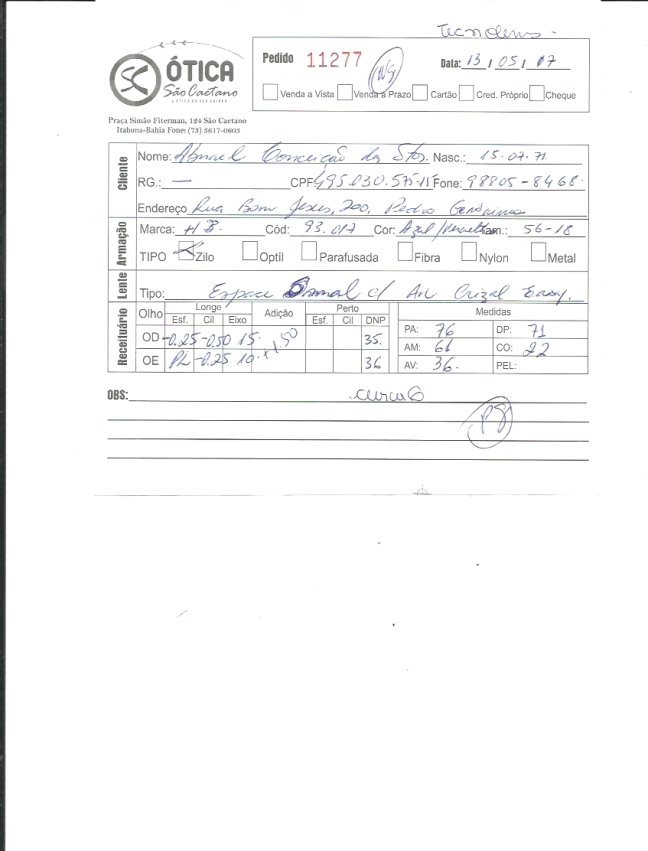 Tecnolens -
ÓTICA
São Caetano
A ÓTICA DO SEU BAIRRO
Praça Simão Fiterman, 124 São Caetano
Itabuna-Bahia Fone: (73) 3617-0603
Pedido 11277 Data: 13 / 05 / 17
Venda a Vista Venda a Prazo Cartão Cred. Próprio Cheque
Cliente
Nome: Conceição dos Stos. Nasc.: 15.07.71
RG.: — CPF 495.030.575-15 Fone: 98805-8468
Endereço Rua Bom Jesus, 200, Pedro Gerônimo
Armação
Marca: HB. Cód: 93.017 Cor: Azul/ Tam.: 56-18
TIPO Zilo Optil Parafusada Fibra Nylon Metal
Lente
Tipo: Espace c/ An Crizal Easy.
Receituário
Olho Longe Adição Perto Medidas
Esf. Cil Eixo Esf. Cil DNP
OD -0.25 -0.50 15. +1.50 35.
OE PL -0.25 10. 36
PA: 76 DP: 71
AM: 61 CO: 22
AV: 36. PEL:
OBS: